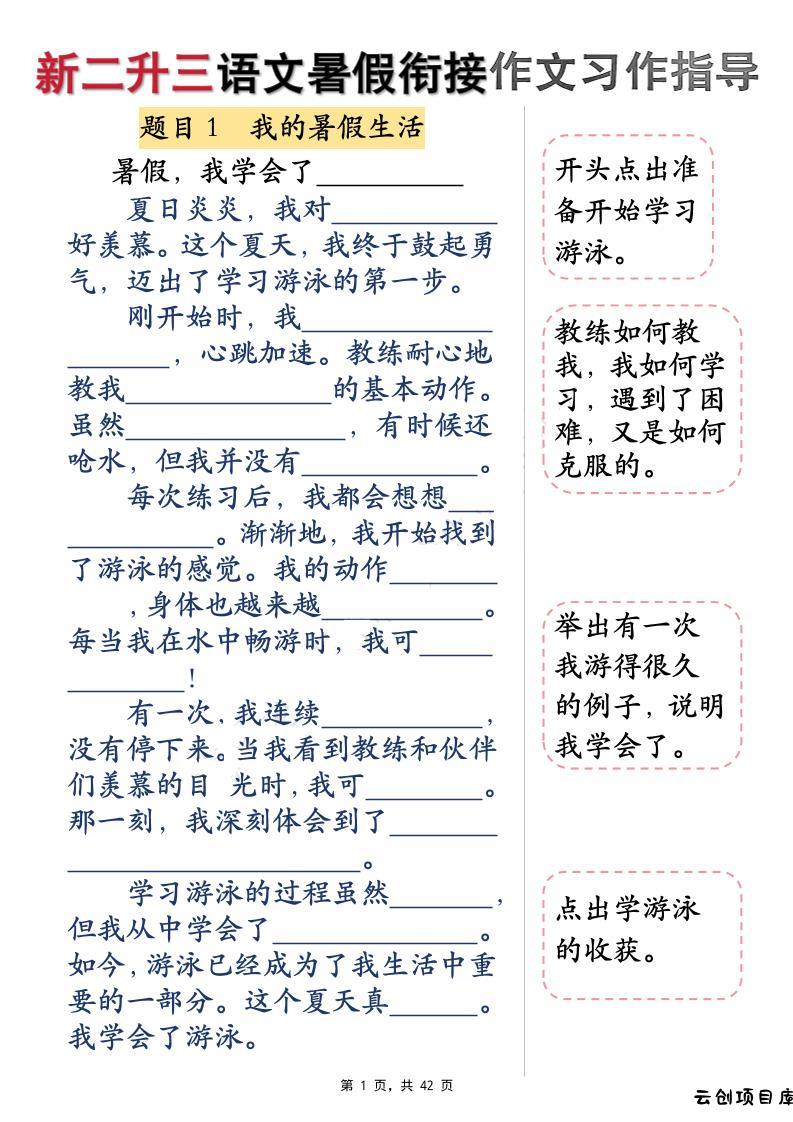 新二升三语文暑假衔接作文习作指导
题目1 我的暑假生活
暑假，我学会了__________
夏日炎炎，我对___________
好羡慕。这个夏天，我终于鼓起勇
气，迈出了学习游泳的第一步。
刚开始时，我_____________
_______，心跳加速。教练耐心地
教我______________的基本动作。
虽然_______________，有时候还
呛水，但我并没有____________。
每次练习后，我都会想想___
__________。渐渐地，我开始找到
了游泳的感觉。我的动作_______
，身体也越来越___________。
每当我在水中畅游时，我可_____
________！
有一次，我连续___________，
没有停下来。当我看到教练和伙伴
们羡慕的目 光时，我可________。
那一刻，我深刻体会到了_______
____________________。
学习游泳的过程虽然_______，
但我从中学会了______________。
如今，游泳已经成为了我生活中重
要的一部分。这个夏天真______。
我学会了游泳。
开头点出准
备开始学习
游泳。
教练如何教
我，我如何学
习，遇到了困
难，又是如何
克服的。
举出有一次
我游得很久
的例子，说明
我学会了。
点出学游泳
的收获。
第 1 页，共 42 页
云创项目库